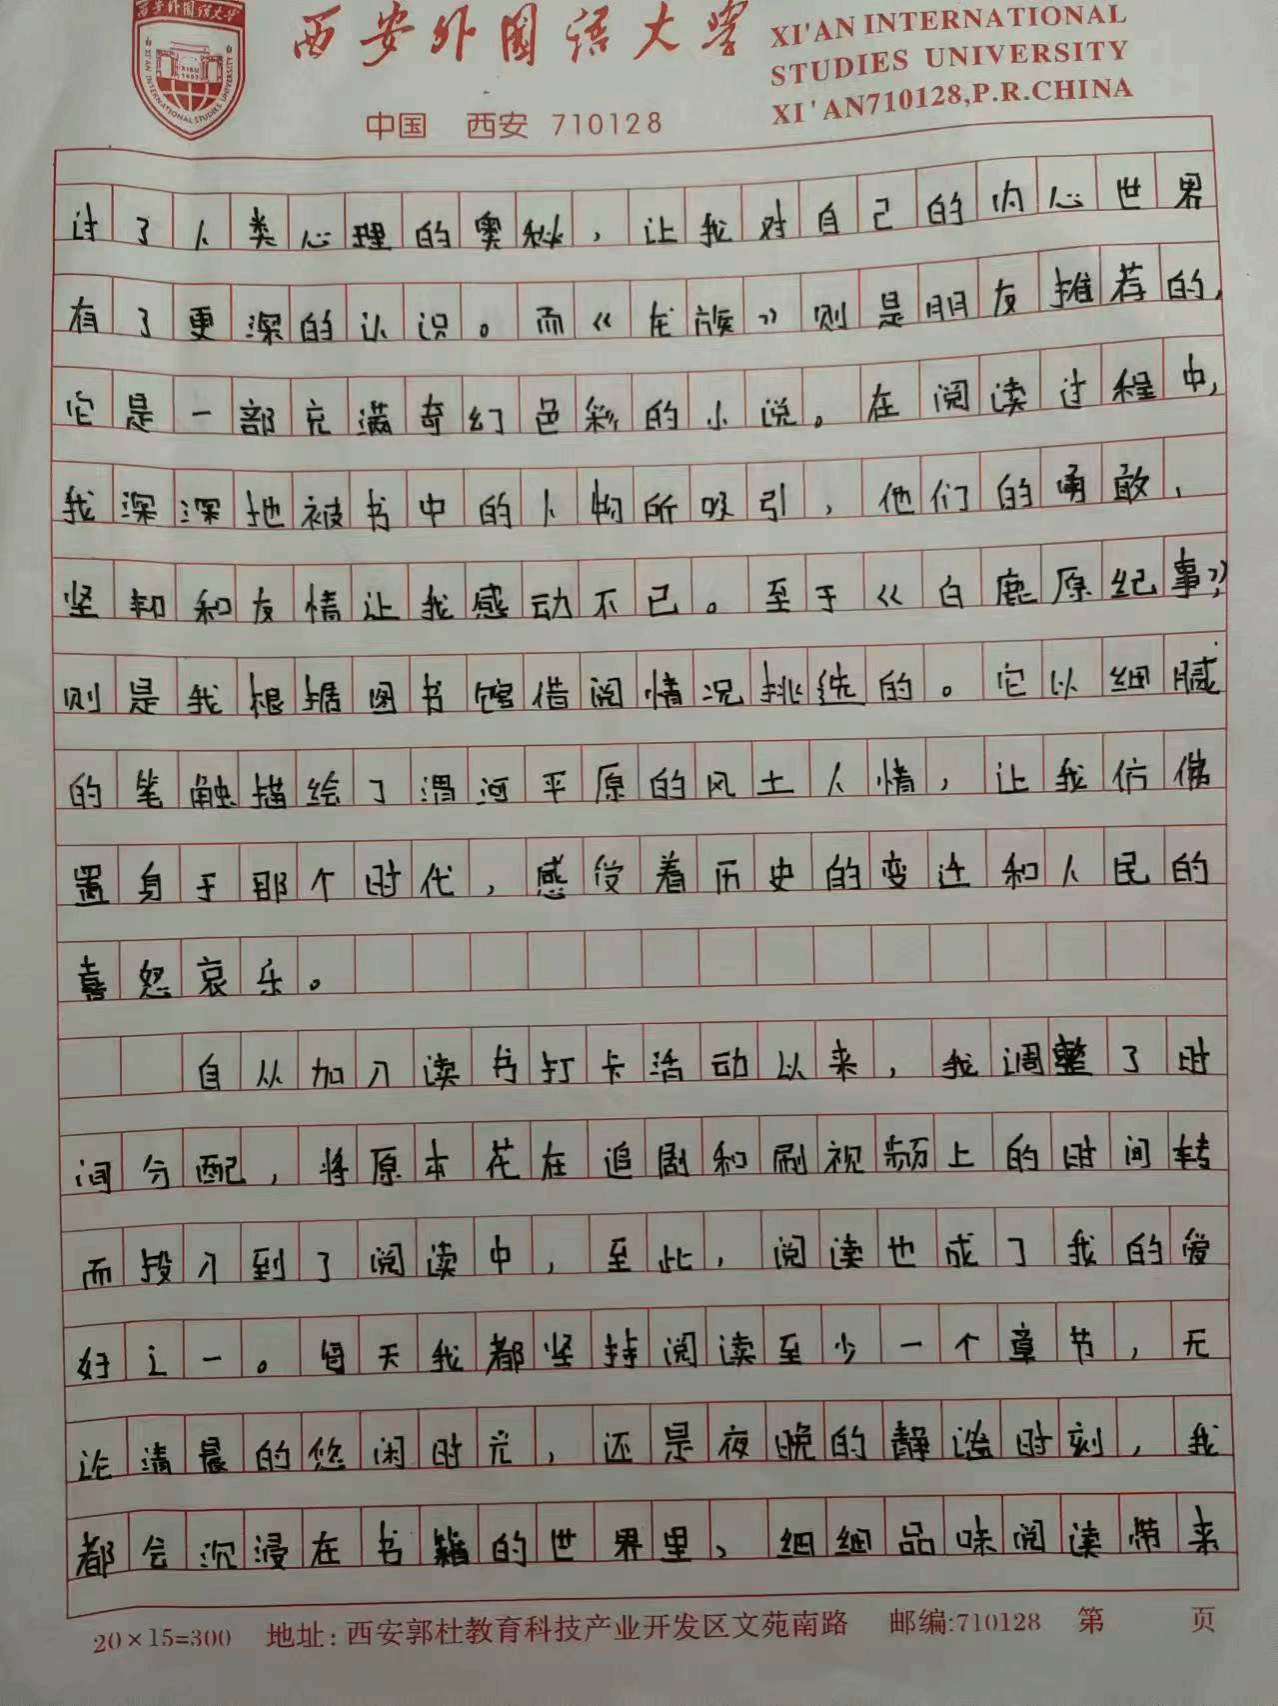 西安外国语大学
XI'AN INTERNATIONAL STUDIES UNIVERSITY
西安外国语大学
XI'AN INTERNATIONAL
STUDIES UNIVERSITY
XI'AN710128,P.R.CHINA
中国 西安 710128
讨了人类心理的奥秘，让我对自己的内心世界
有了更深的认识。而《龙族》则是朋友推荐的，
它是一部充满奇幻色彩的小说。在阅读过程中，
我深深地被书中的人物所吸引，他们的勇敢、
坚韧和友情让我感动不已。至于《白鹿原纪事》，
则是我根据图书馆借阅情况挑选的。它以细腻
的笔触描绘了渭河平原的风土人情，让我仿佛
置身于那个时代，感受着历史的变迁和人民的
喜怒哀乐。
自从加入读书打卡活动以来，我调整了时
间分配，将原本花在追剧和刷视频上的时间转
而投入到了阅读中，至此，阅读也成了我的爱
好之一。每天我都坚持阅读至少一个章节，无
论清晨的悠闲时光，还是夜晚的静谧时刻，我
都会沉浸在书籍的世界里，细细品味阅读带来
20×15=300 地址：西安郭杜教育科技产业开发区文苑南路 邮编:710128 第 页